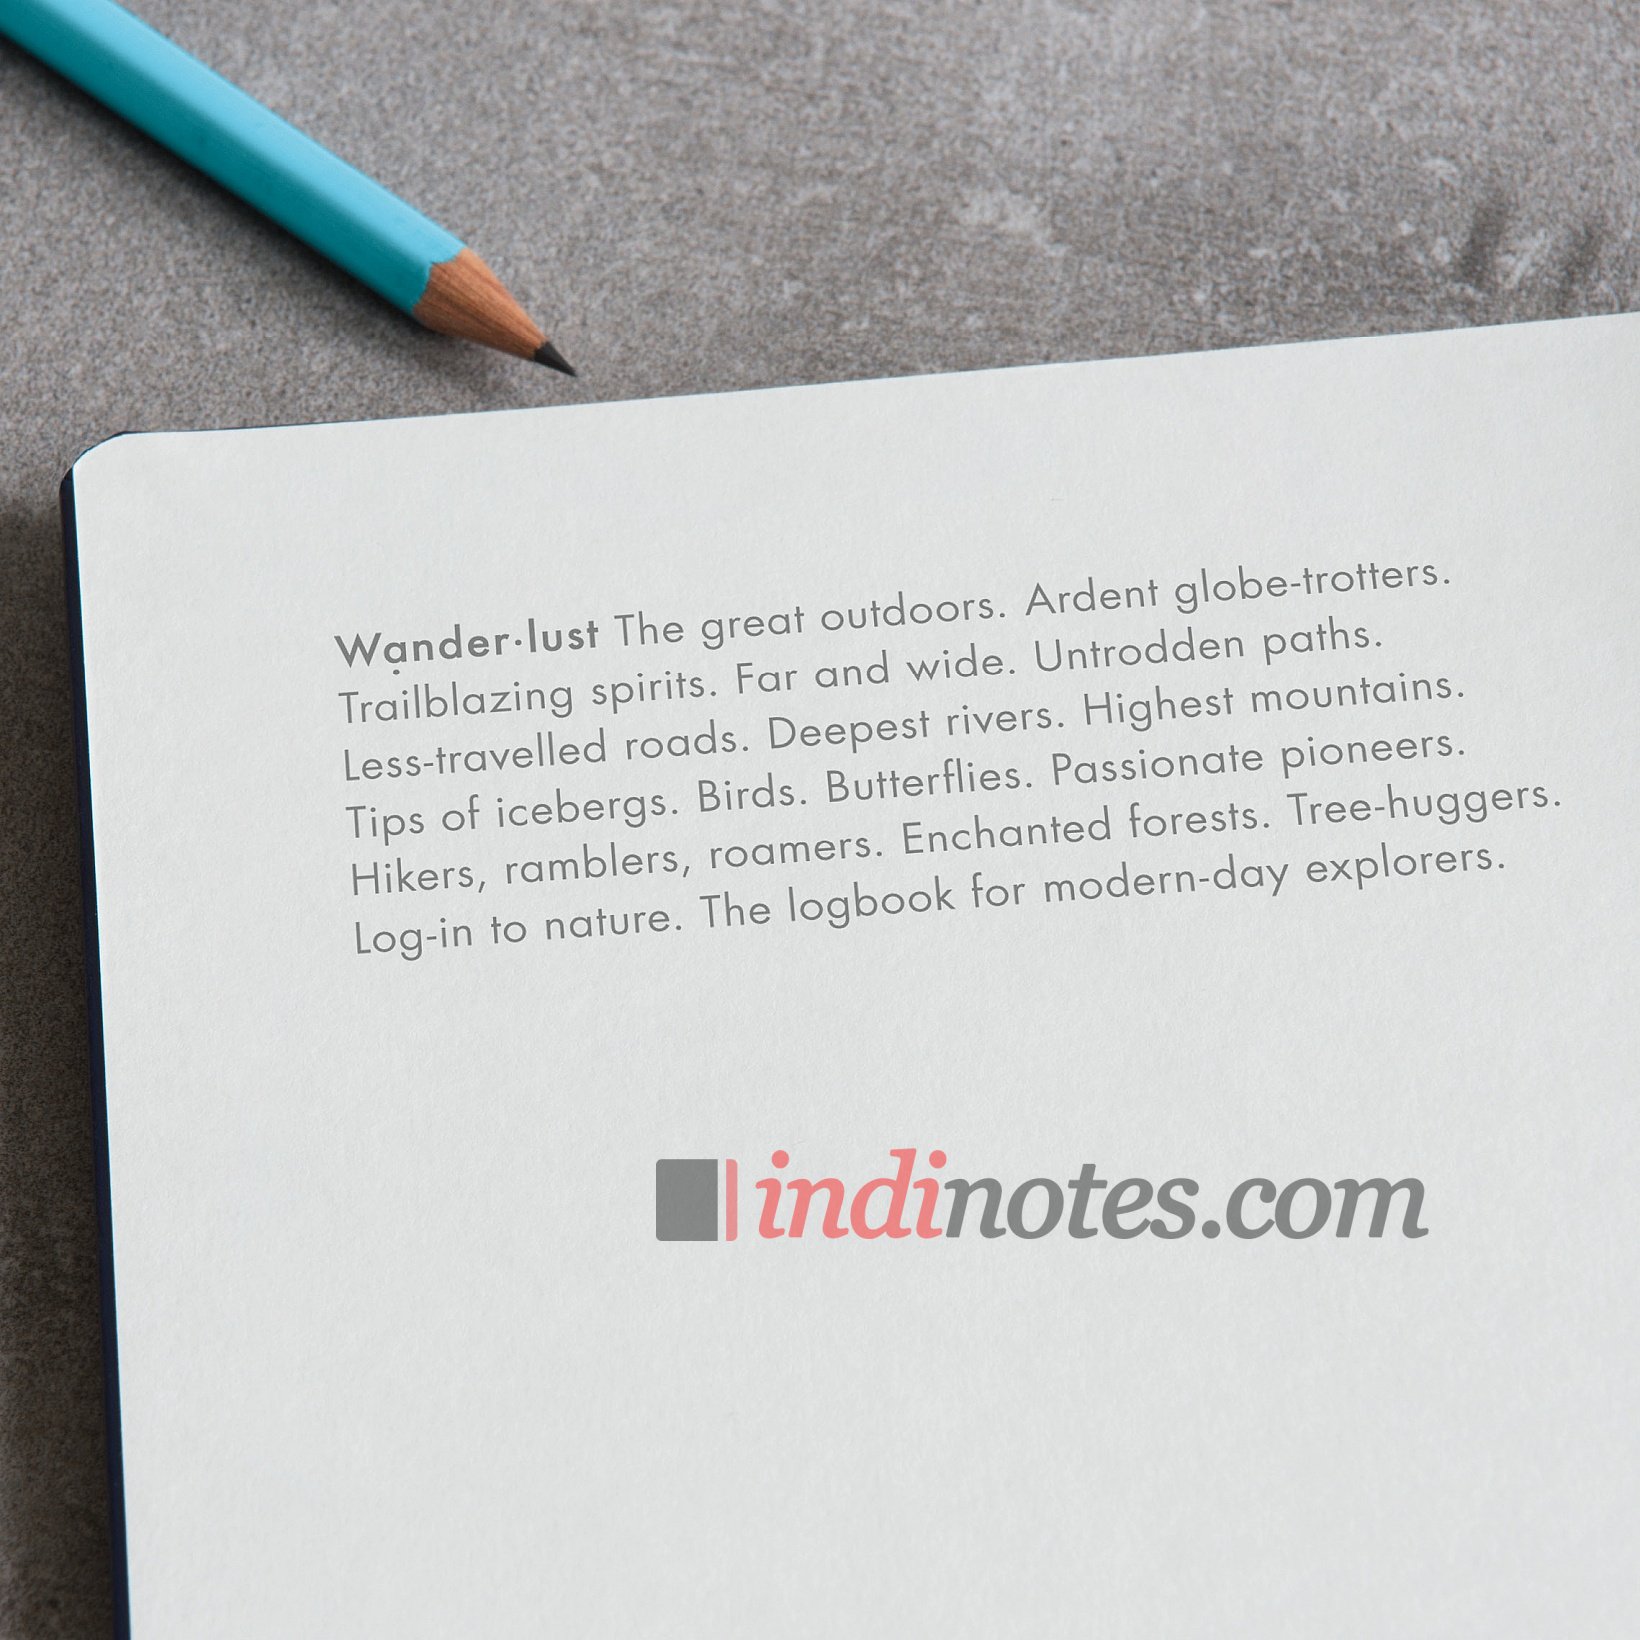 Wạnder·lust The great outdoors. Ardent globe-trotters.
Trailblazing spirits. Far and wide. Untrodden paths.
Less-travelled roads. Deepest rivers. Highest mountains.
Tips of icebergs. Birds. Butterflies. Passionate pioneers.
Hikers, ramblers, roamers. Enchanted forests. Tree-huggers.
Log-in to nature. The logbook for modern-day explorers.
indinotes.com